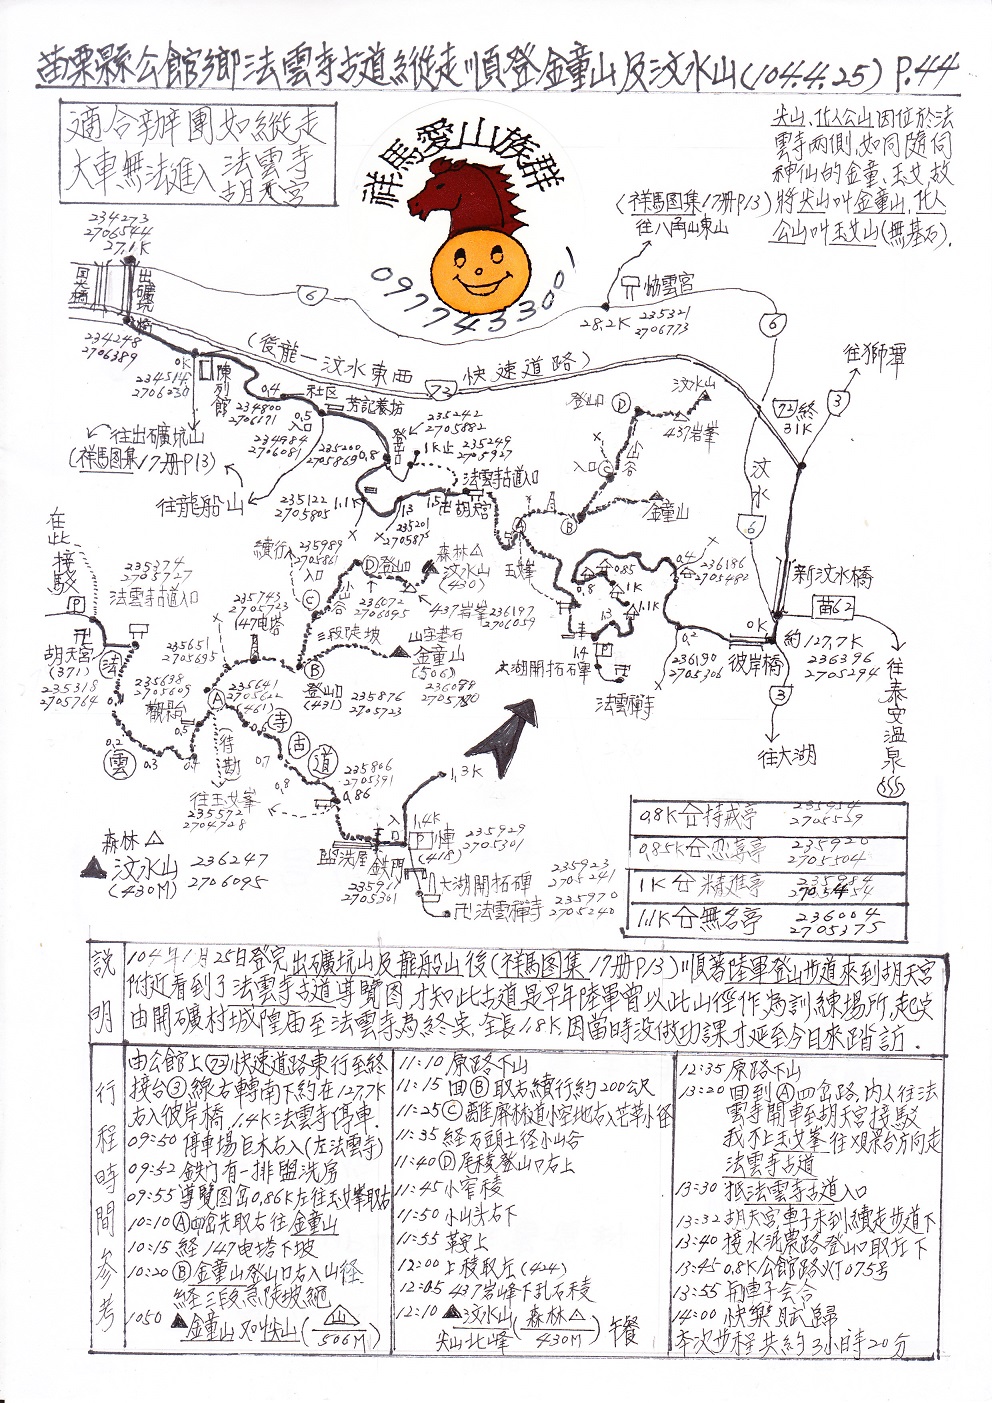 苗栗縣公館鄉法雲寺古道縱走順登金童山及汶水山(104.4.25) P.44
適合辦團如縱走
大車無法進入法雲寺
胡天宮
祥馬愛山族群
0977433001
尖山、仙人公山因位於法
雲寺兩側,如同隨侍
神仙的金童、玉女故
將尖山叫金童山,仙人
公山叫玉女山(無基石).
(祥馬图集17册P13)
往八角山東山
234273
2706544
27.1K
出礦坑
6
28.2K
235321
2706773
6
234248
2706389
(後龍一汶水東西
72
快速道路)
往獅潭
0K
234514
2706230
陳列館
0.4
社区
234800
2706171
0.5
入口
234984
2706081
芳記養坊
235200
2705869
0.8
登山口
235242
2705882
1K止
235249
2705927
往出礦坑山
(祥馬图集17册P13)
往龍船山
235122
2705805
1.1K
1.3
235201
1.5
卍胡天宮
法雲寺古道入口
登山口
D
汶水山
437岩峯
山谷
入口
C
金童山
A
B
玉女峯
72終
31K
3
汶水
6
新汶水橋
苗62
0K
約127.7K
236396
2705294
彼岸橋
3
往大湖
往泰安温泉
0.4
236186
2705482
0.85
0.8
1K
1.1K
1.3
1.4
P
0.2
236190
2705306
大湖開拓石碑
法雲禪寺
在此接駁
P
卍
胡天宮
(371)
235318
2705764
235374
2705727
法雲寺古道入口
235651
2705695
235638
2705609
觀景台
0.2
0.3
0.4
0.5
法
雲
寺
古
道
235743
2705723
147电塔
235641
2705622
(461)
A
0.6
0.7
0.8
(待勘)
往玉女峯
235572
2704928
續行
235989
2705861
入口
C
山谷
D
登山口
236072
2706095
森林△
汶水山
(430)
437岩峯
236197
2706059
三段陡坡
山字基石
金童山
(506)
B
登山口
(431)
235876
2705723
235806
2705391
0.86
盥洗屋
鉄門
235911
2705301
入口
1.3K
1.4K
P
停車
(418)
235929
2705301
大湖開拓碑
235923
2705241
卍法雲禪寺
235970
2705240
森林△
▲汶水山
(430M)
236247
2706095
0.8K 持戒亭 235954 2705529
0.85K 忍辱亭 235920 2705504
1K 精進亭 235984 2705454
1.1K 無名亭 236004 2705375
説明
104年1月25日登完出礦坑山及龍船山後(祥馬图集17册P13)順著陸軍登山步道來到胡天宮
附近看到了法雲寺古道導覽図,才知此古道是早年陸軍曾以此山徑作為訓練場所,起点
由開礦村城隍庙至法雲寺為終点,全長1.8K因當時没做功課才延至今日來踏訪.
行程時間参考
由公館上72快速道路東行至終
接台3線右轉南下約在127.7K
右入彼岸橋,1.4K法雲寺停車.
09:50 停車場巨木右入(左法雲寺)
09:52 鉄门有一排盥洗房
09:55 導覽图岔0.86K左往玉女峯取右
10:10 A四岔先取右往金童山
10:15 経147电塔下坡
10:20 B金童山登山口右入山徑
経三段急陡坡繩
1050 ▲金童山又叫尖山(山 506M)
11:10 原路下山
11:15 回B取右續行約200公尺
11:25 C離產林道小空地右入芒草小徑
11:35 経石頭土徑小山谷
11:40 D尾稜登山口右上
11:45 小窄稜
11:50 小山头右下
11:55 鞍上
12:00 上稜取左(424)
12:05 437岩峰下乱石稜
12:10 ▲汶水山(森林△ 430M)午餐
尖山北峰
12:35 原路下山
13:20 回到A四岔路,内人往法
雲寺開車至胡天宮接駁
我不上玉女峯往观景台方向走
法雲寺古道
13:30 抵法雲寺古道入口
13:32 胡天宮車子未到續走步道下
13:40 接水泥農路登山口取左下
13:45 0.8K公館路灯075号
13:55 與車子会合
14:00 快樂賦歸
本次步程共約3小時20分